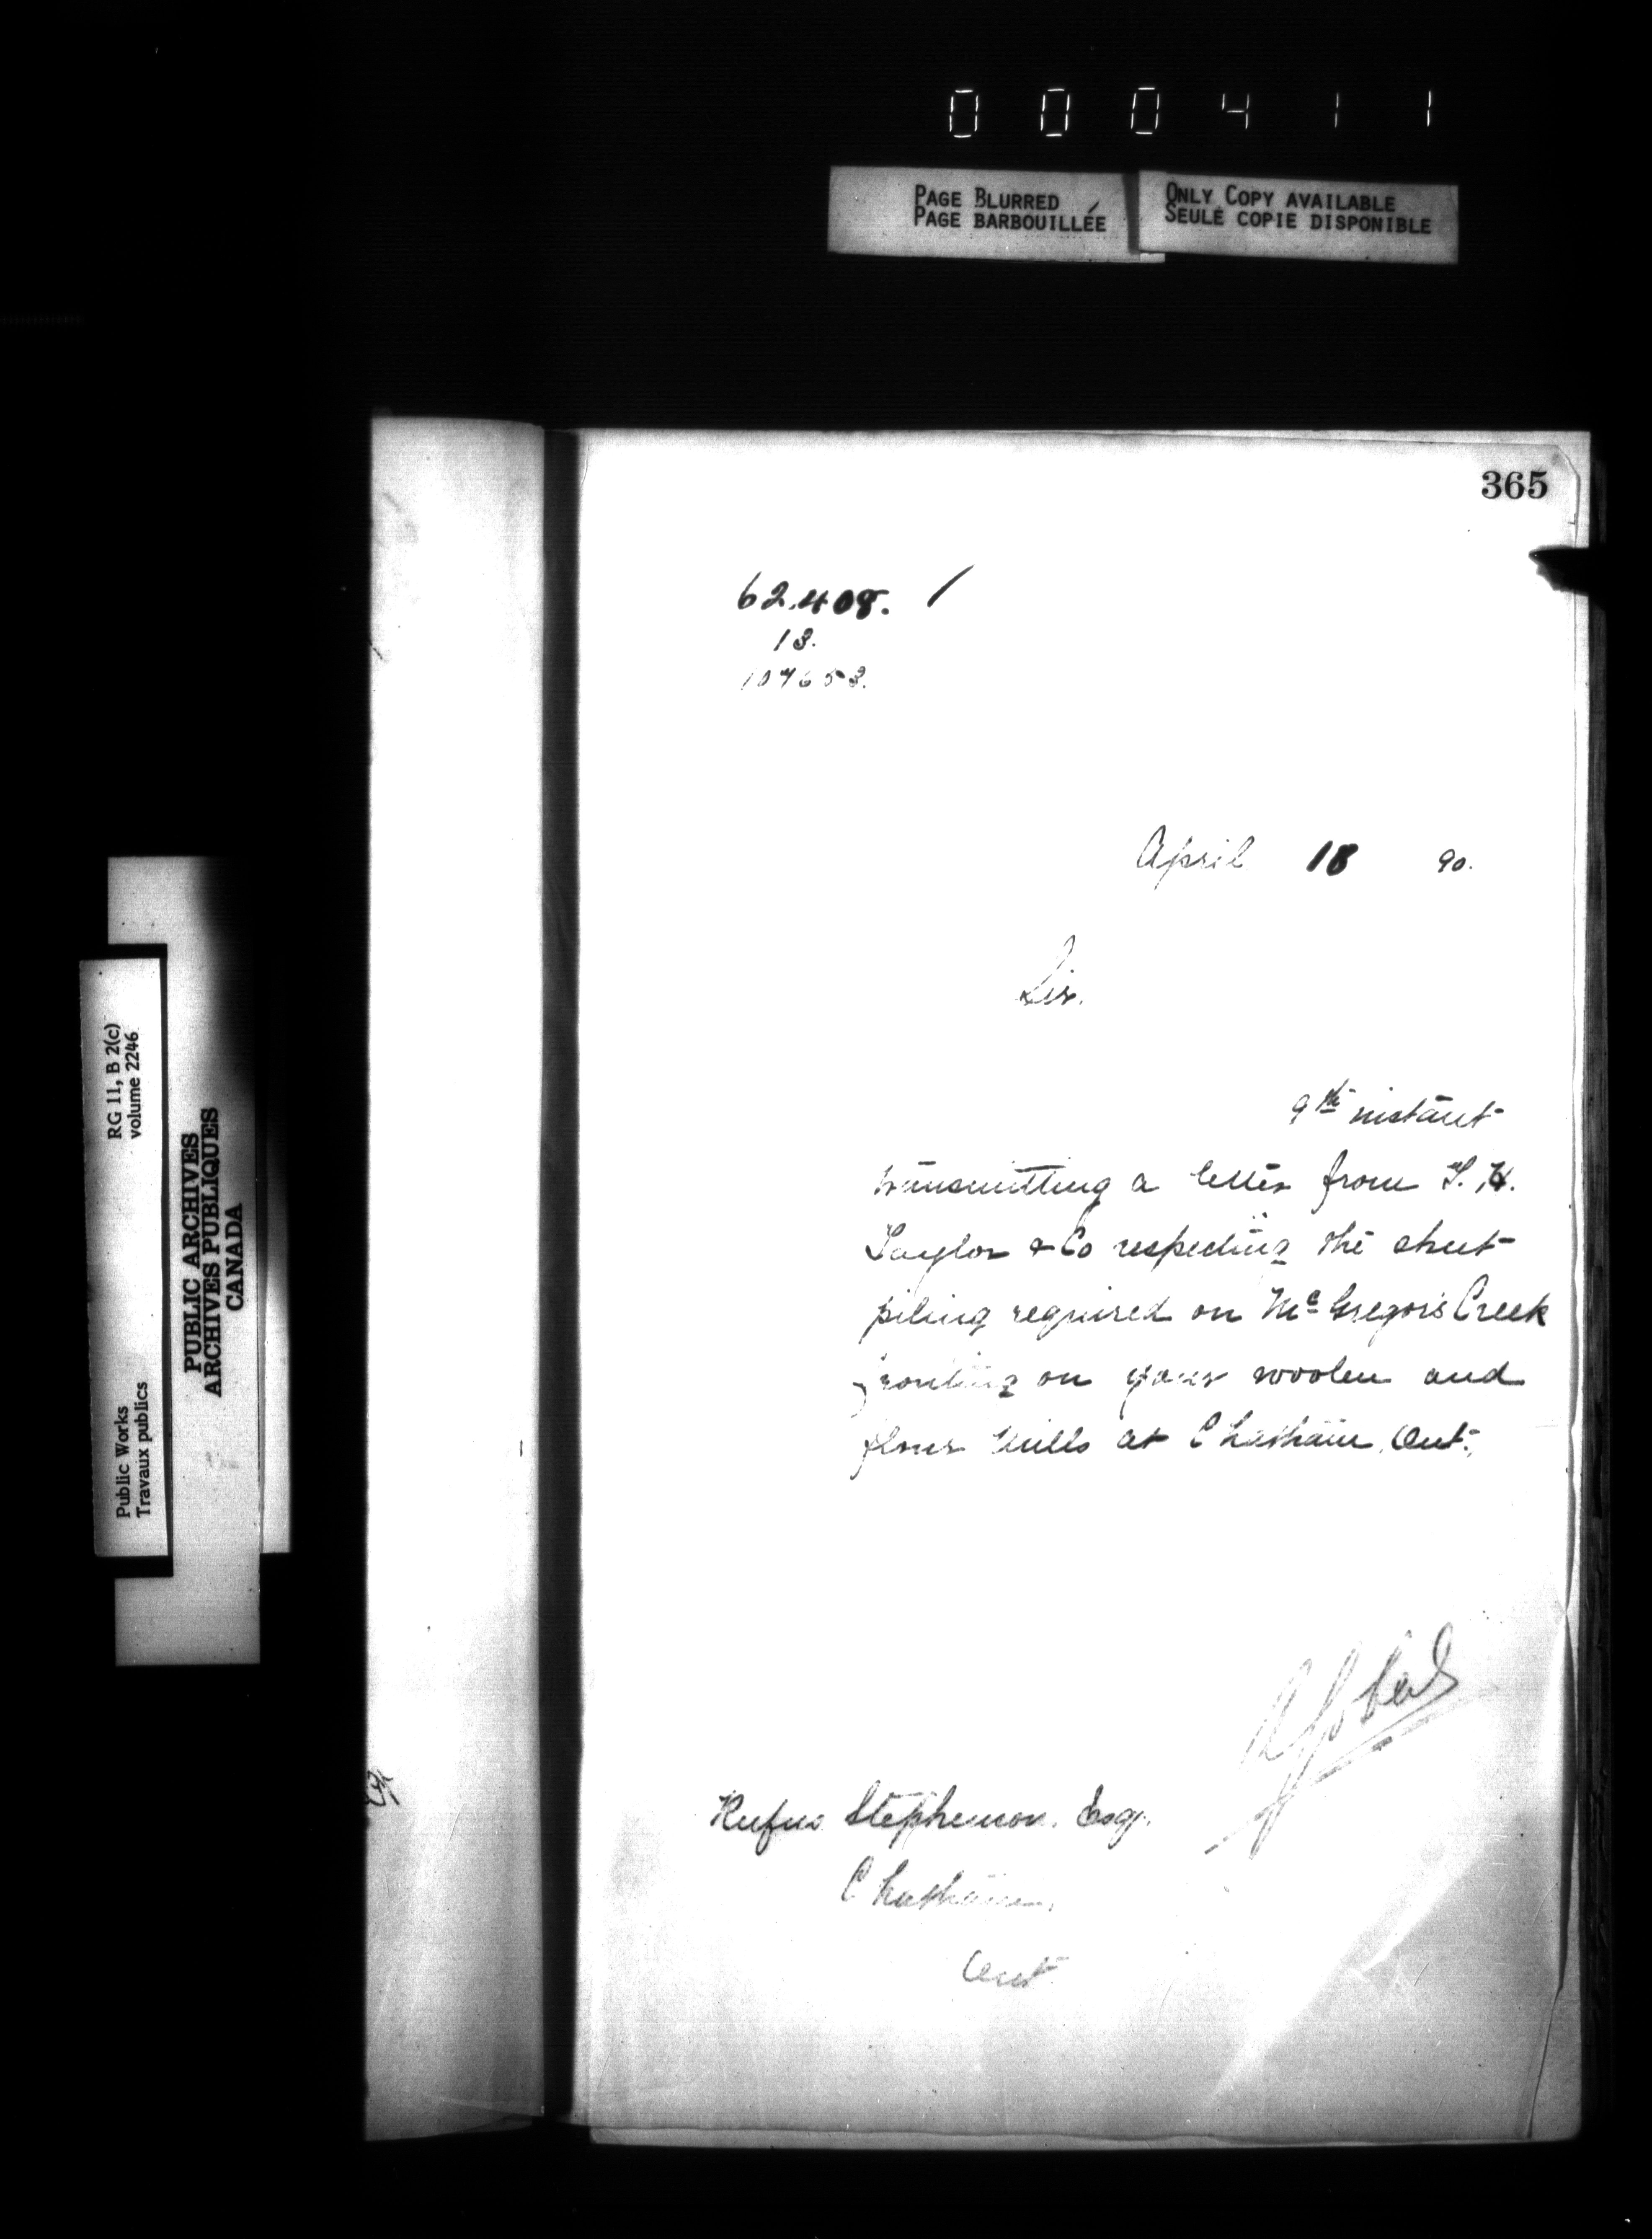 000411
PAGE BLURRED
PAGE BARBOUILLÉE
ONLY COPY AVAILABLE
SEULE COPIE DISPONIBLE
RG 11, B 2(c)
volume 2246
Public Works
Travaux publics
PUBLIC ARCHIVES
ARCHIVES PUBLIQUES
CANADA
365
62.408. /
13.
107653.
April 18 90.
Sir.
9th instant
transmitting a letter from T. H.
Taylor & Co respecting the sheet
piling required on Mc Gregor's Creek
fronting on your woolen and
flour mills at Chatham, Ont.
Rufus Stephenson. Esq.
Chatham,
Ont